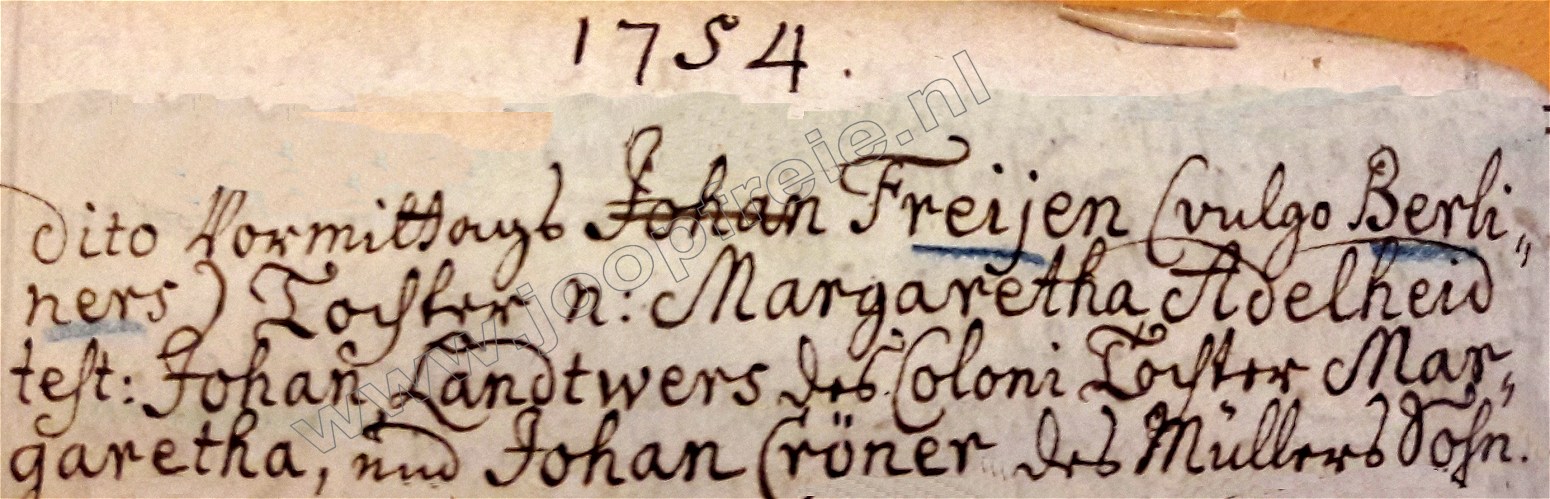 1754.
dito Vormittags Johan Freijen (vulgo Berli„
ners) Tochter n: Margaretha Adelheid
test: Johan Landtwers des Coloni Tochter Mar„
garetha, und Johan Cröner des Müllers Sohn.
www.joopfreie.nl